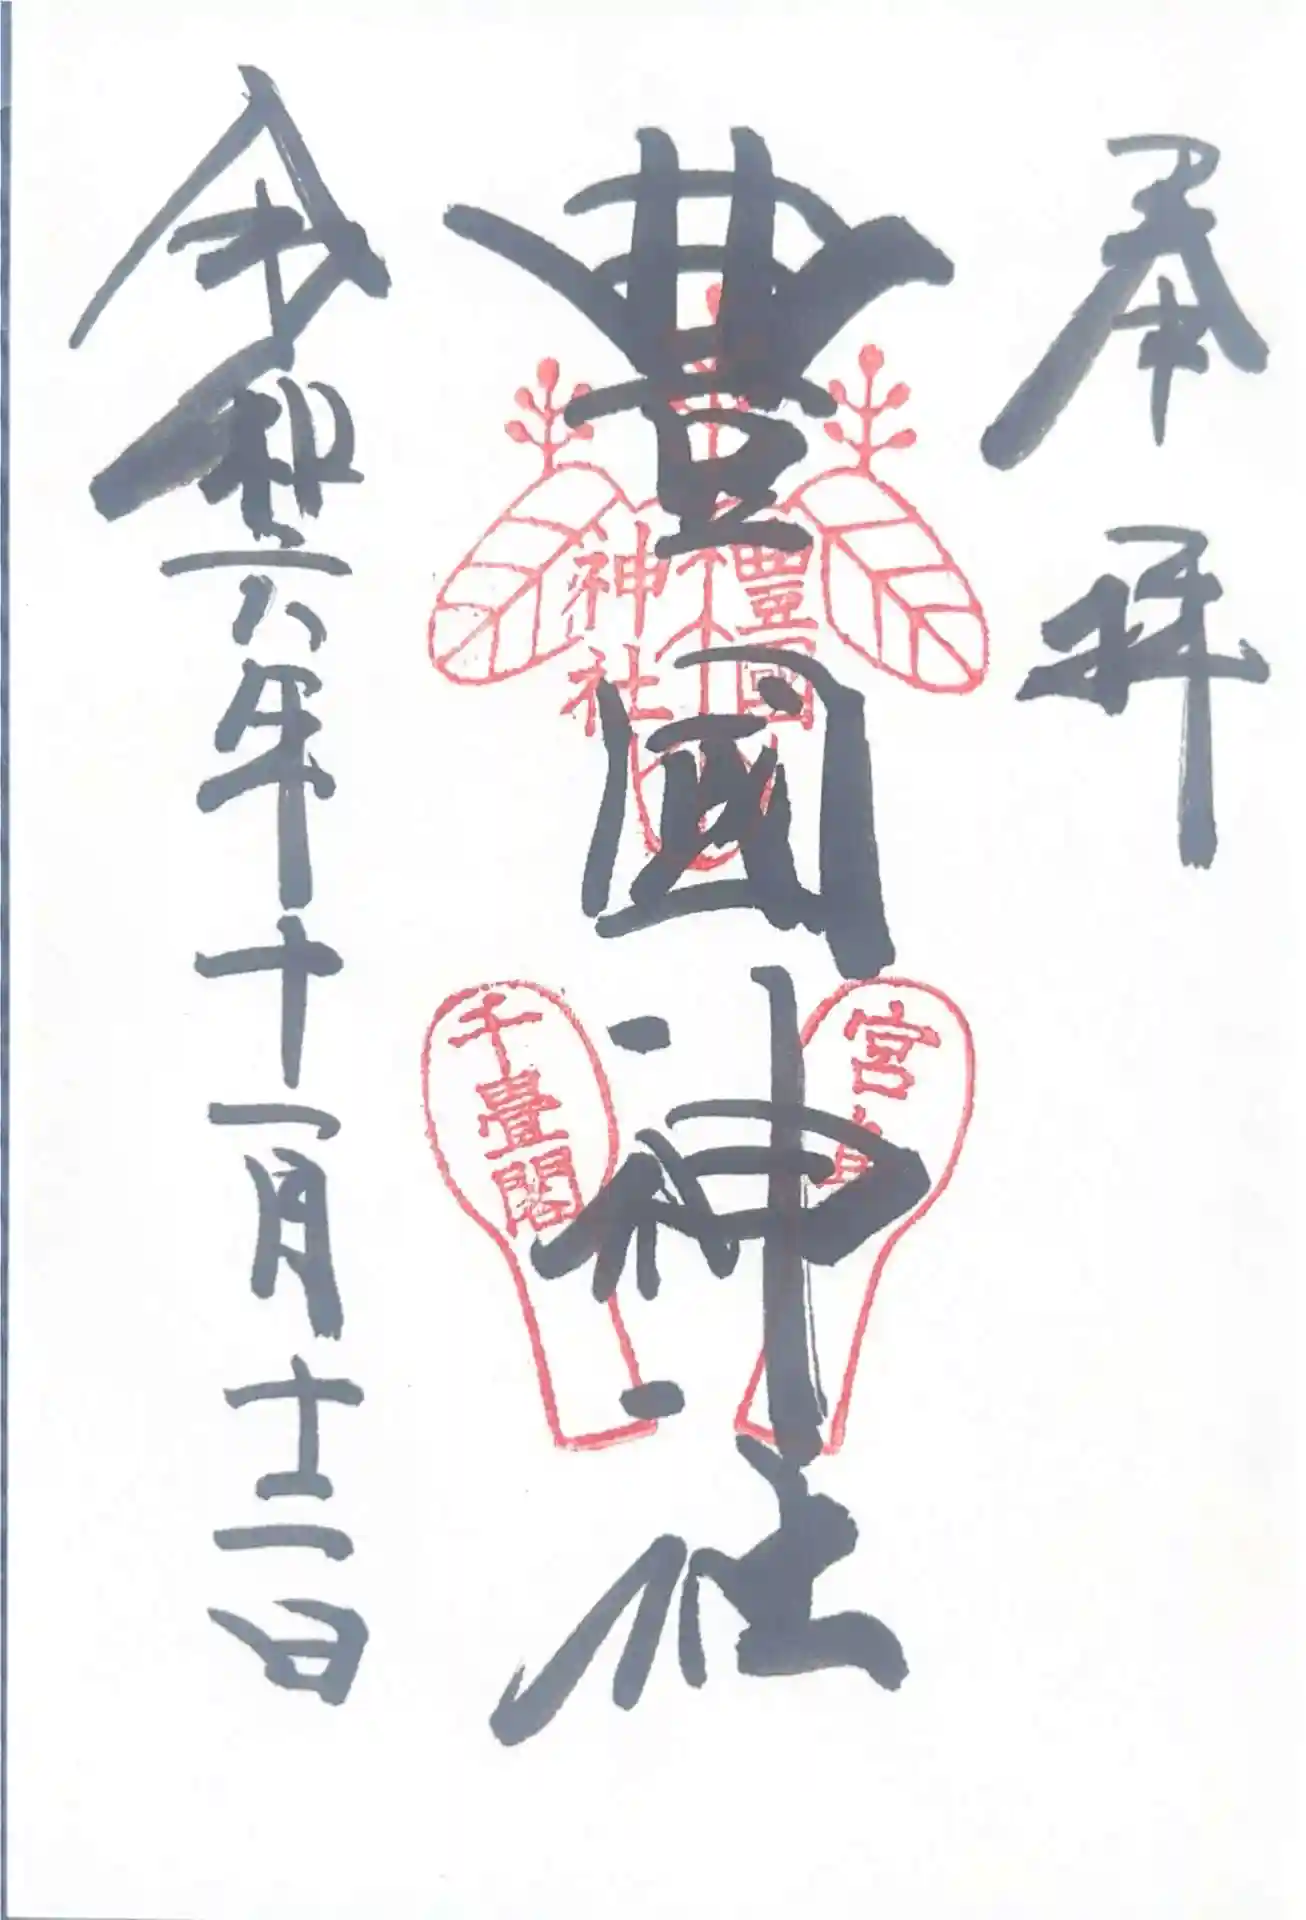 奉拝
豊國神社
豐國
神社
宮島
千畳閣
令和六年十一月十二日